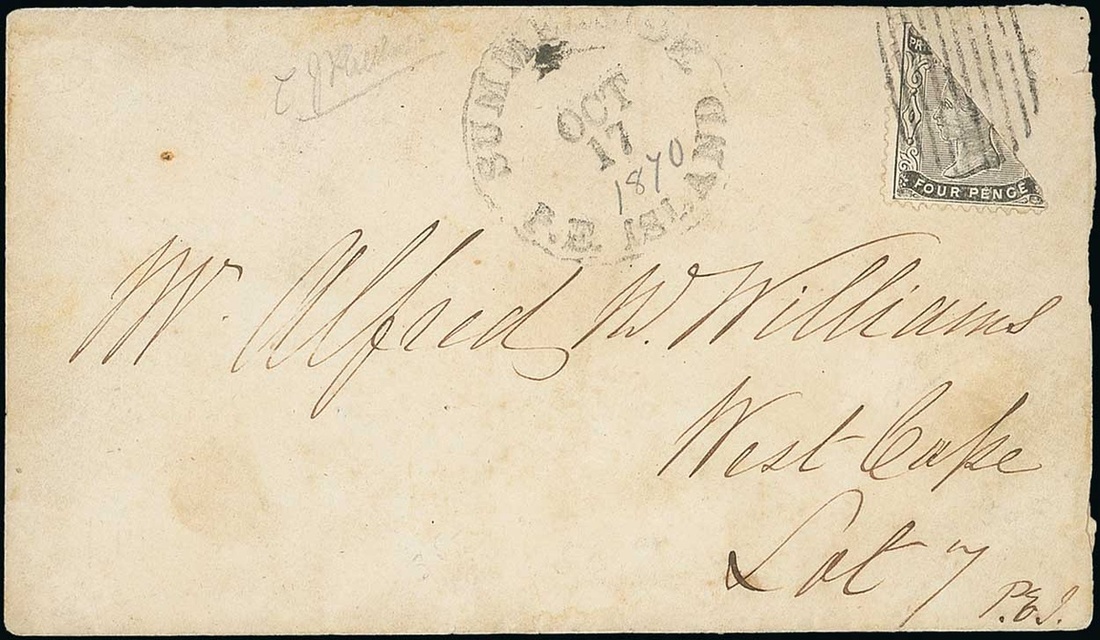 SUMMERSIDE
OCT
17
1870
P.E. ISLAND
PR
FOUR PENCE
Mr. Alfred W. Williams
West Cape
Lot 7
P.E.I.